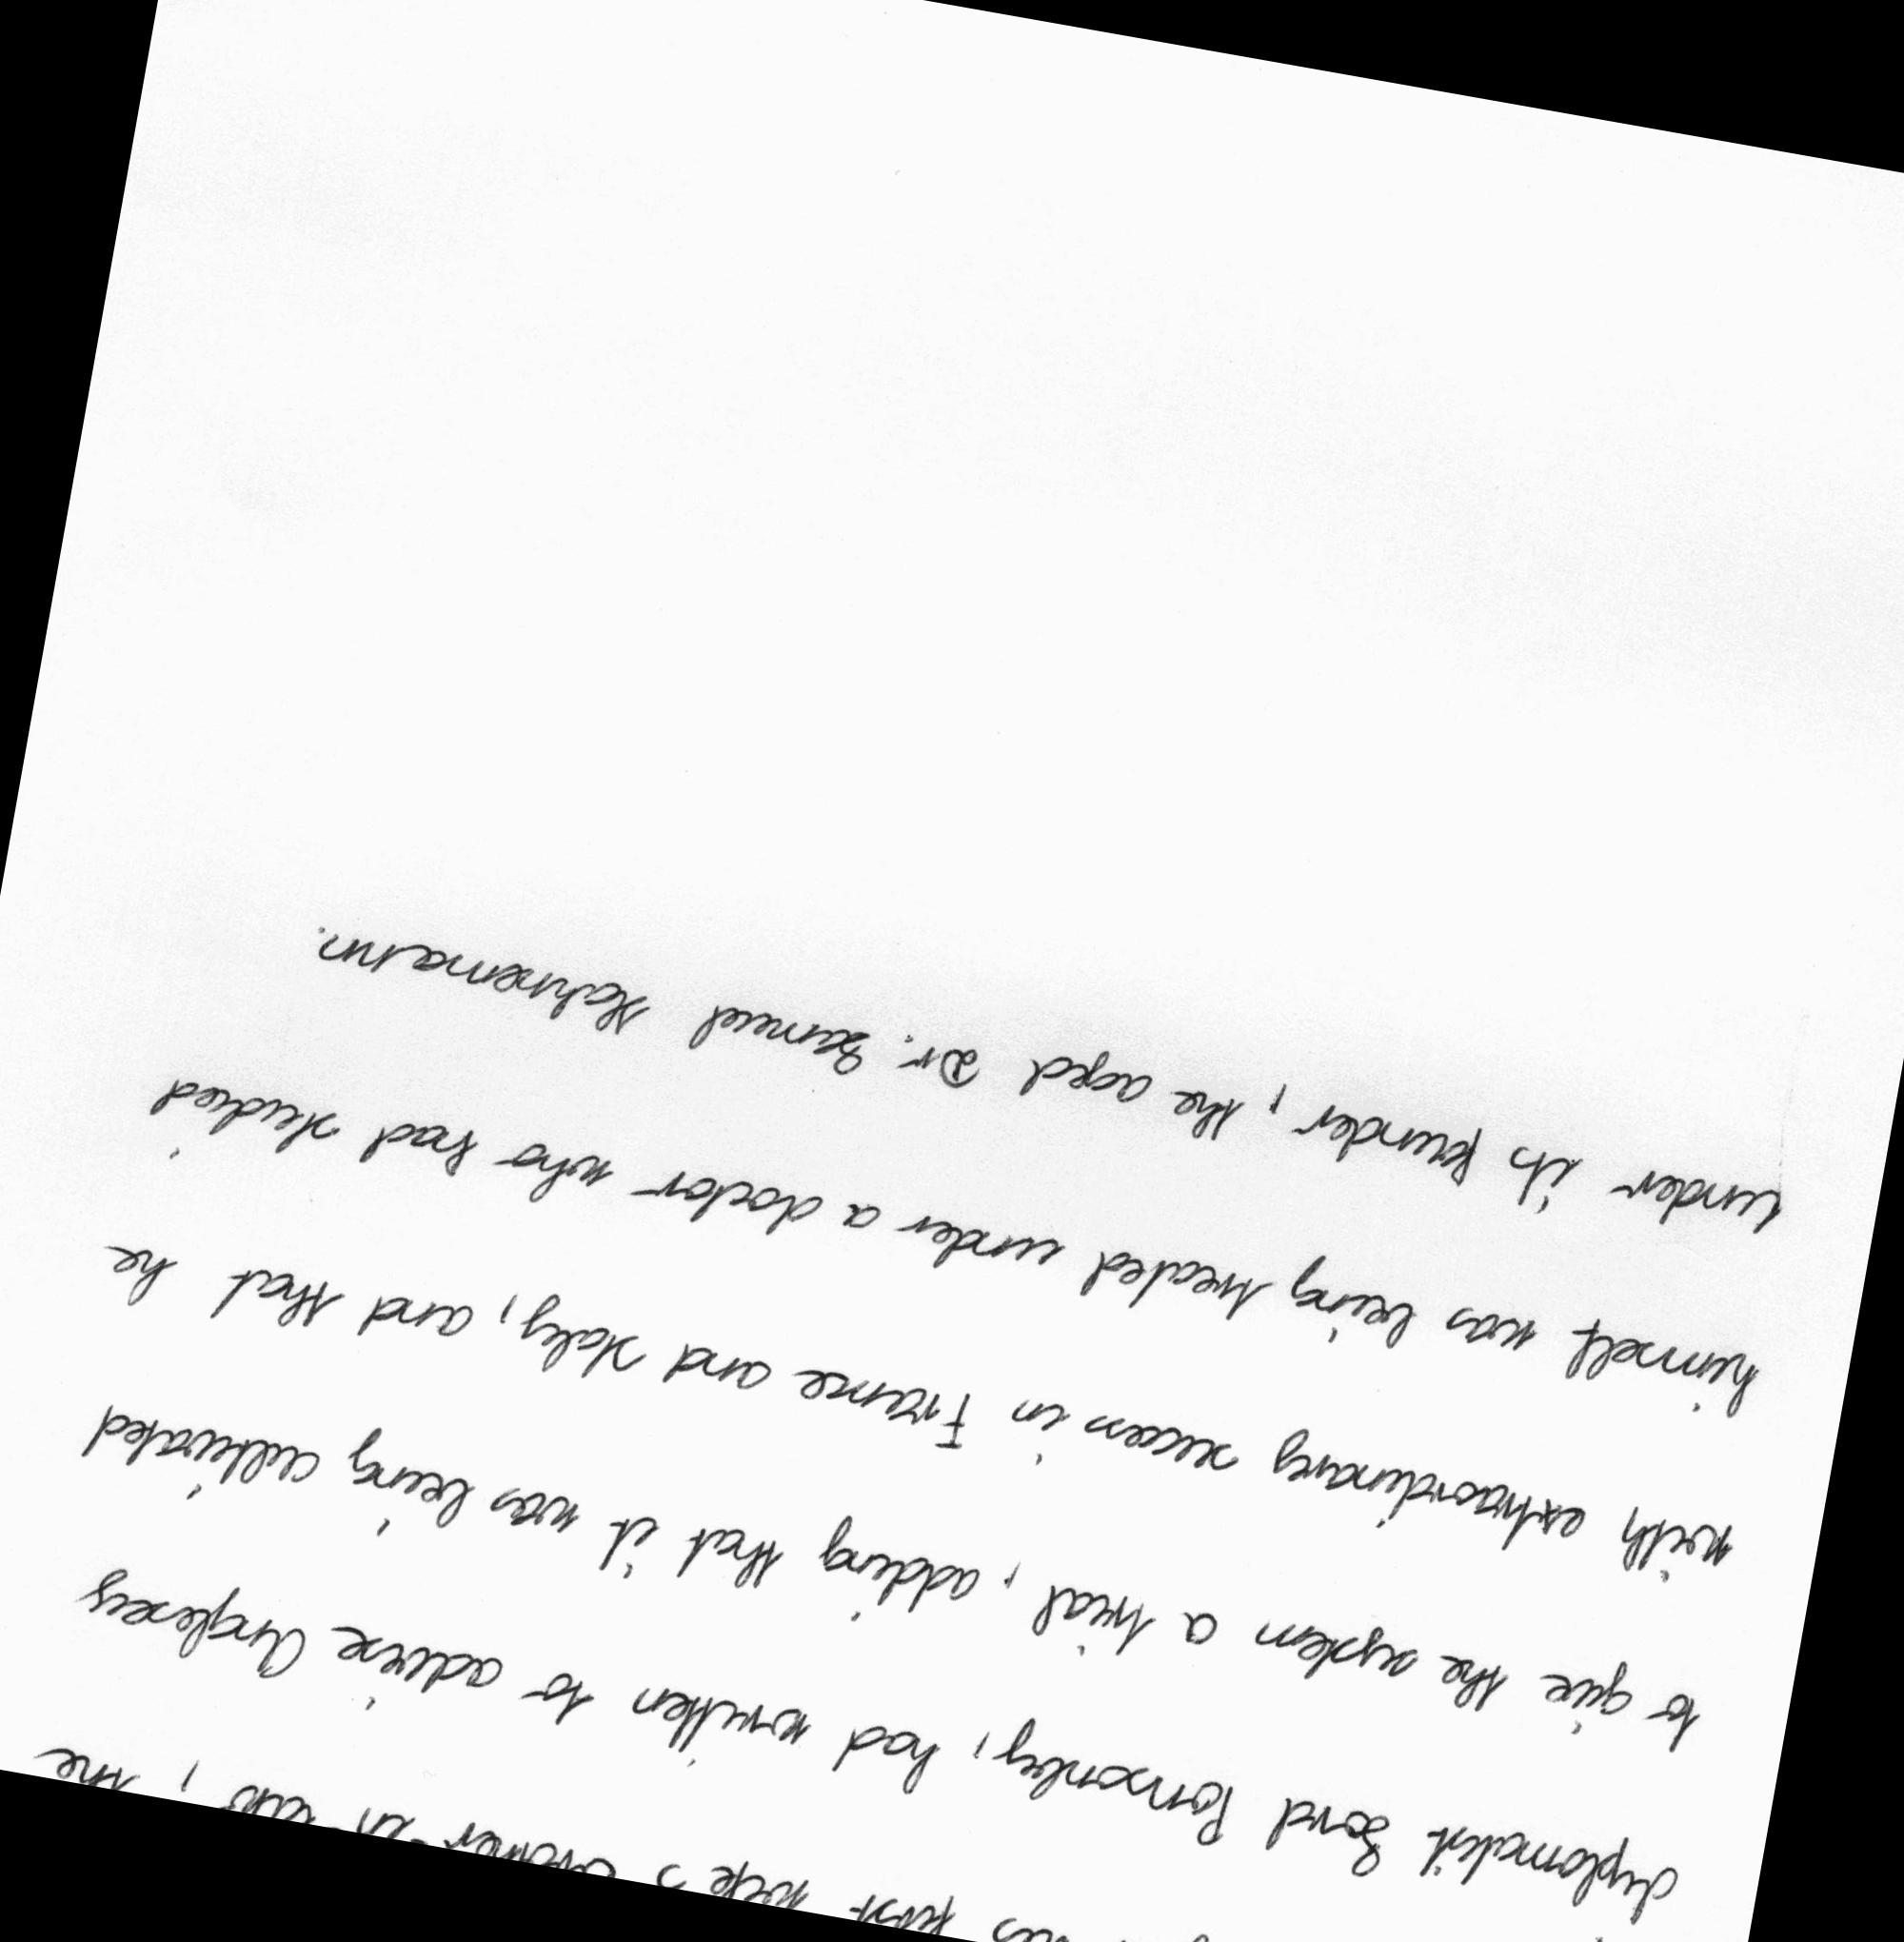 his first wife's brother-in-law, the
diplomatist Lord Ponsonby, had written to advise Anglesey
to give the system a trial, adding that it was being cultivated
with extraordinary success in France and Italy, and that he
himself was being treated under a doctor who had studied
under its founder, the aged Dr. Samuel Hahnemann.